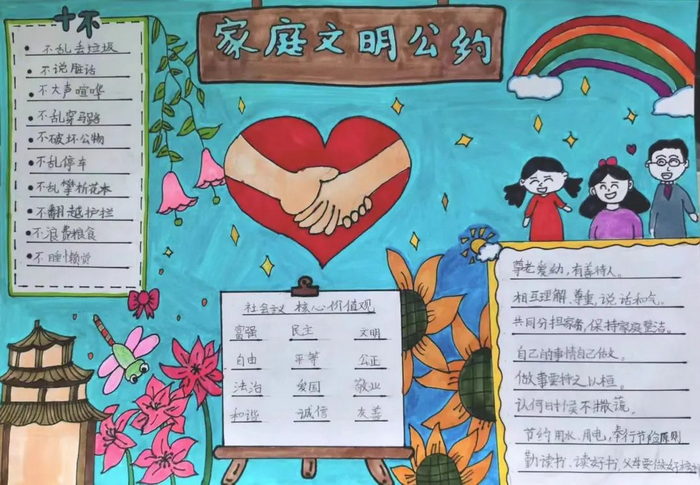 家庭文明公约
十不
不乱丢垃圾
不说脏话
不大声喧哗
不乱穿马路
不破坏公物
不乱停车
不乱攀折花木
不翻越护拦
不浪费粮食
不睡懒觉
社会主义 核心价值观
富强 民主 文明
自由 平等 公正
法治 爱国 敬业
和谐 诚信 友善
尊老爱幼,有善待人。
相互理解、尊重,说话和气。
共同分担家务,保持家庭整洁。
自己的事情自己做。
做事要持之以恒。
认何时候不撒谎。
节约用水、用电,奉行节俭原则
勤读书、读好书,父母要做好榜